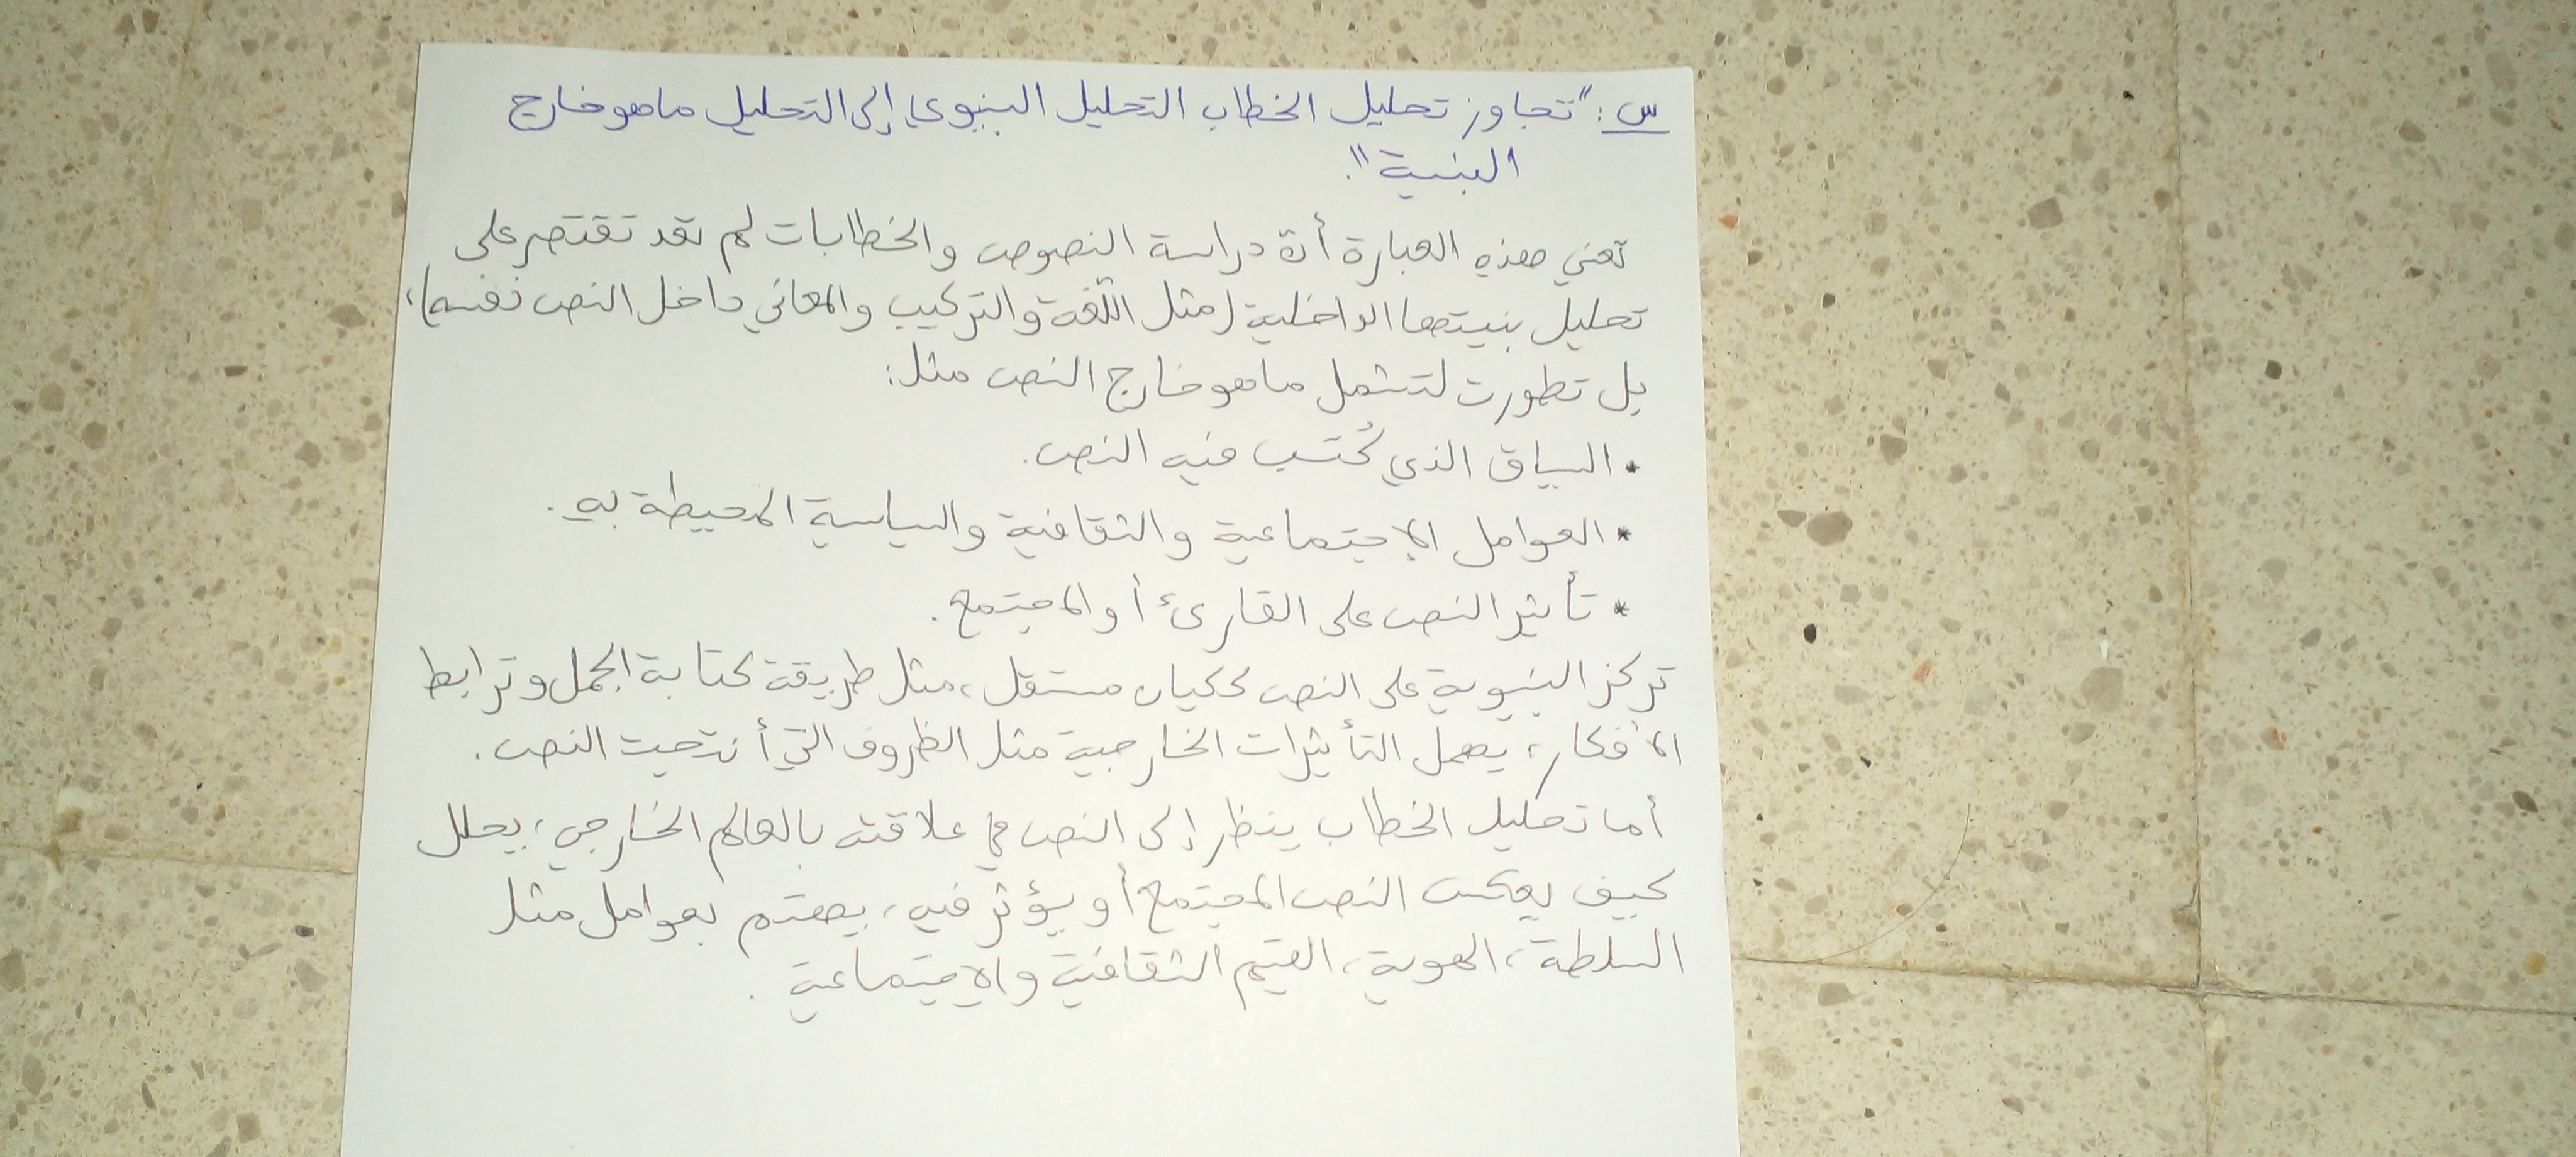 س: "تجاوز تحليل الخطاب التحليل البنيوي إلى التحليل ما هو خارج
البنية".
تعني هذه العبارة أن دراسة النصوص والخطابات لم تعد تقتصر على
تحليل بنيتها الداخلية (مثل اللغة والتركيب والمعاني داخل النص نفسه)،
بل تطورت لتشمل ما هو خارج النص مثل:
* السياق الذي كُتب فيه النص.
* العوامل الاجتماعية والثقافية والسياسية المحيطة به.
* تأثير النص على القارئ أو المجتمع.
تركز البنيوية على النص ككيان مستقل، مثل طريقة كتابة الجمل وترابط
الأفكار، يهمل التأثيرات الخارجية مثل الظروف التي أنتجت النص.
أما تحليل الخطاب ينظر إلى النص في علاقته بالعالم الخارجي، يحلل
كيف يعكس النص المجتمع أو يؤثر فيه، يهتم بعوامل مثل
السلطة، الهوية، القيم الثقافية والاجتماعية.